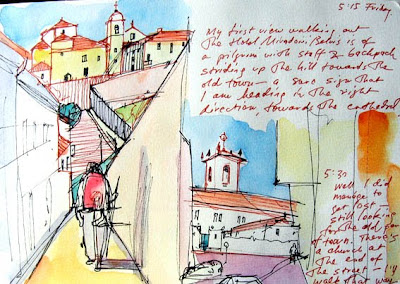 5:15 Friday
My first view walking out
The Hotel Miradouro Belvis is of
a pilgrim with staff & backpack
striding up the hill towards the
old town — a sure sign that
I am heading in the right
direction, towards the cathedral
5:30
Well I did
manage to
get lost -
still looking
for the old part
of town. There's
a church at
the end of
the street - I'll
walk that way